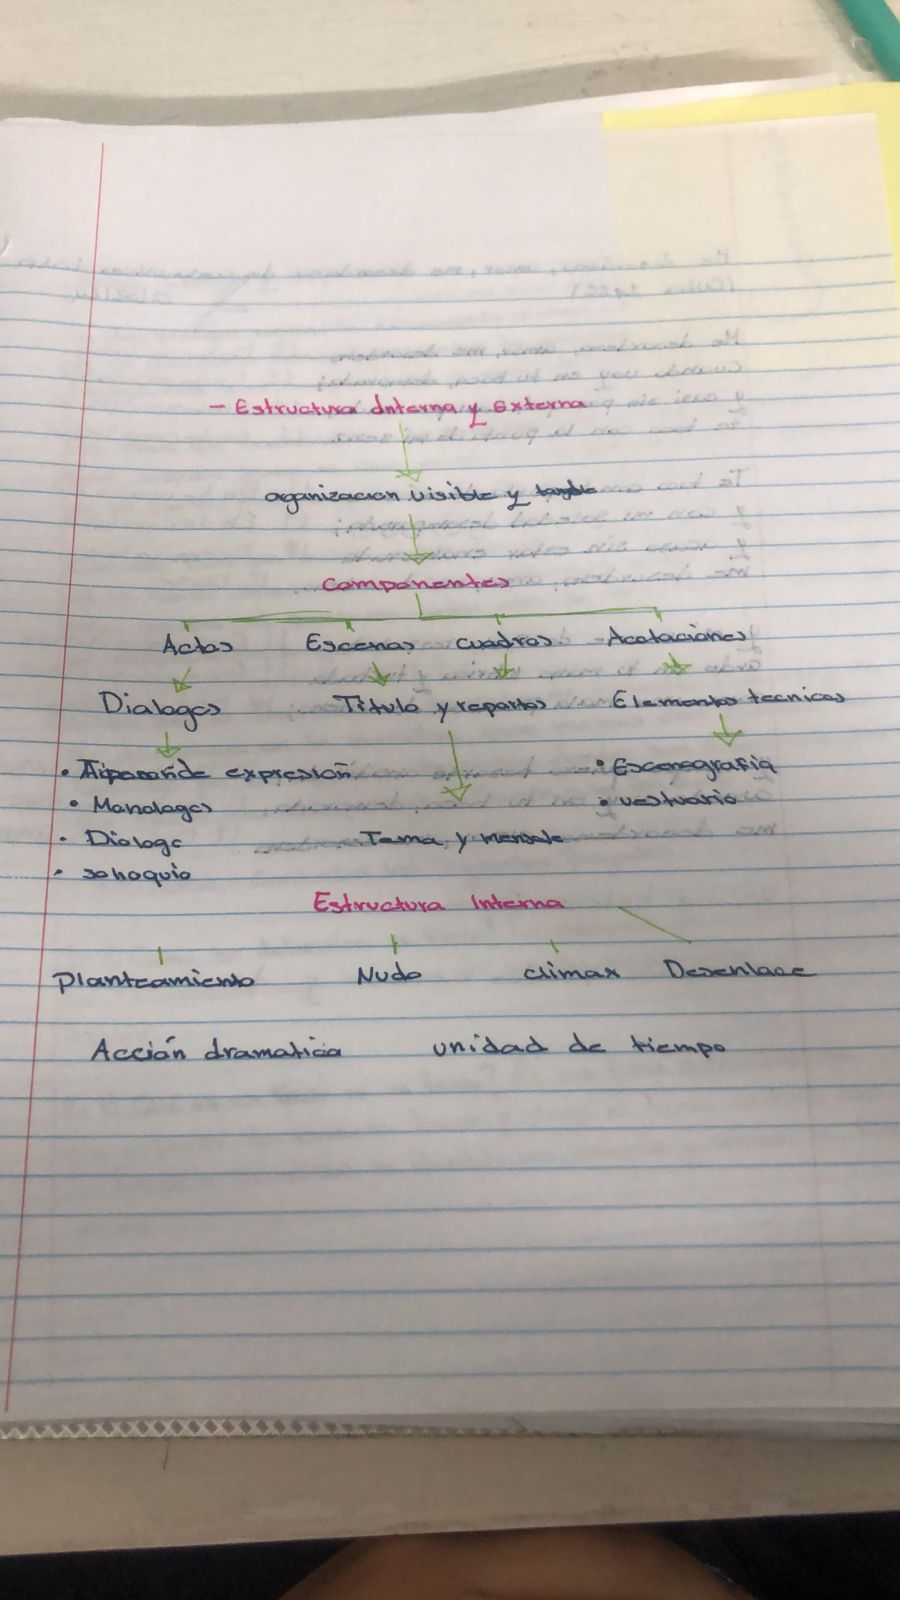 - Estructura Interna y externa
organización visible y tangible
componentes
Actos Escenas cuadros Acotaciones
Dialogos Titulo y repartos Elementos tecnicos
• de expresión • Escenografia
• Monologos • vestuario
• Dialogo Tema y mensaje
• soliloquio
Estructura Interna
Planteamiento Nudo climax Desenlace
Acción dramatica unidad de tiempo